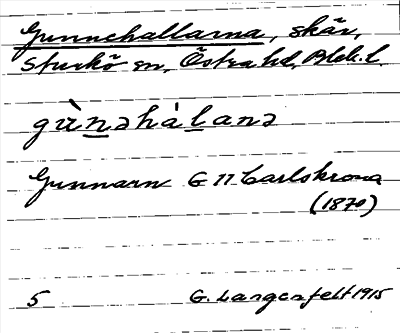 Gunnehallarna, skär,
Sturkö sn, Östra hd, Blek. l.
gù̀nəhàlanə
Gunnarn G 11 Carlskrona
(1870)
5 G. Langenfelt 1915